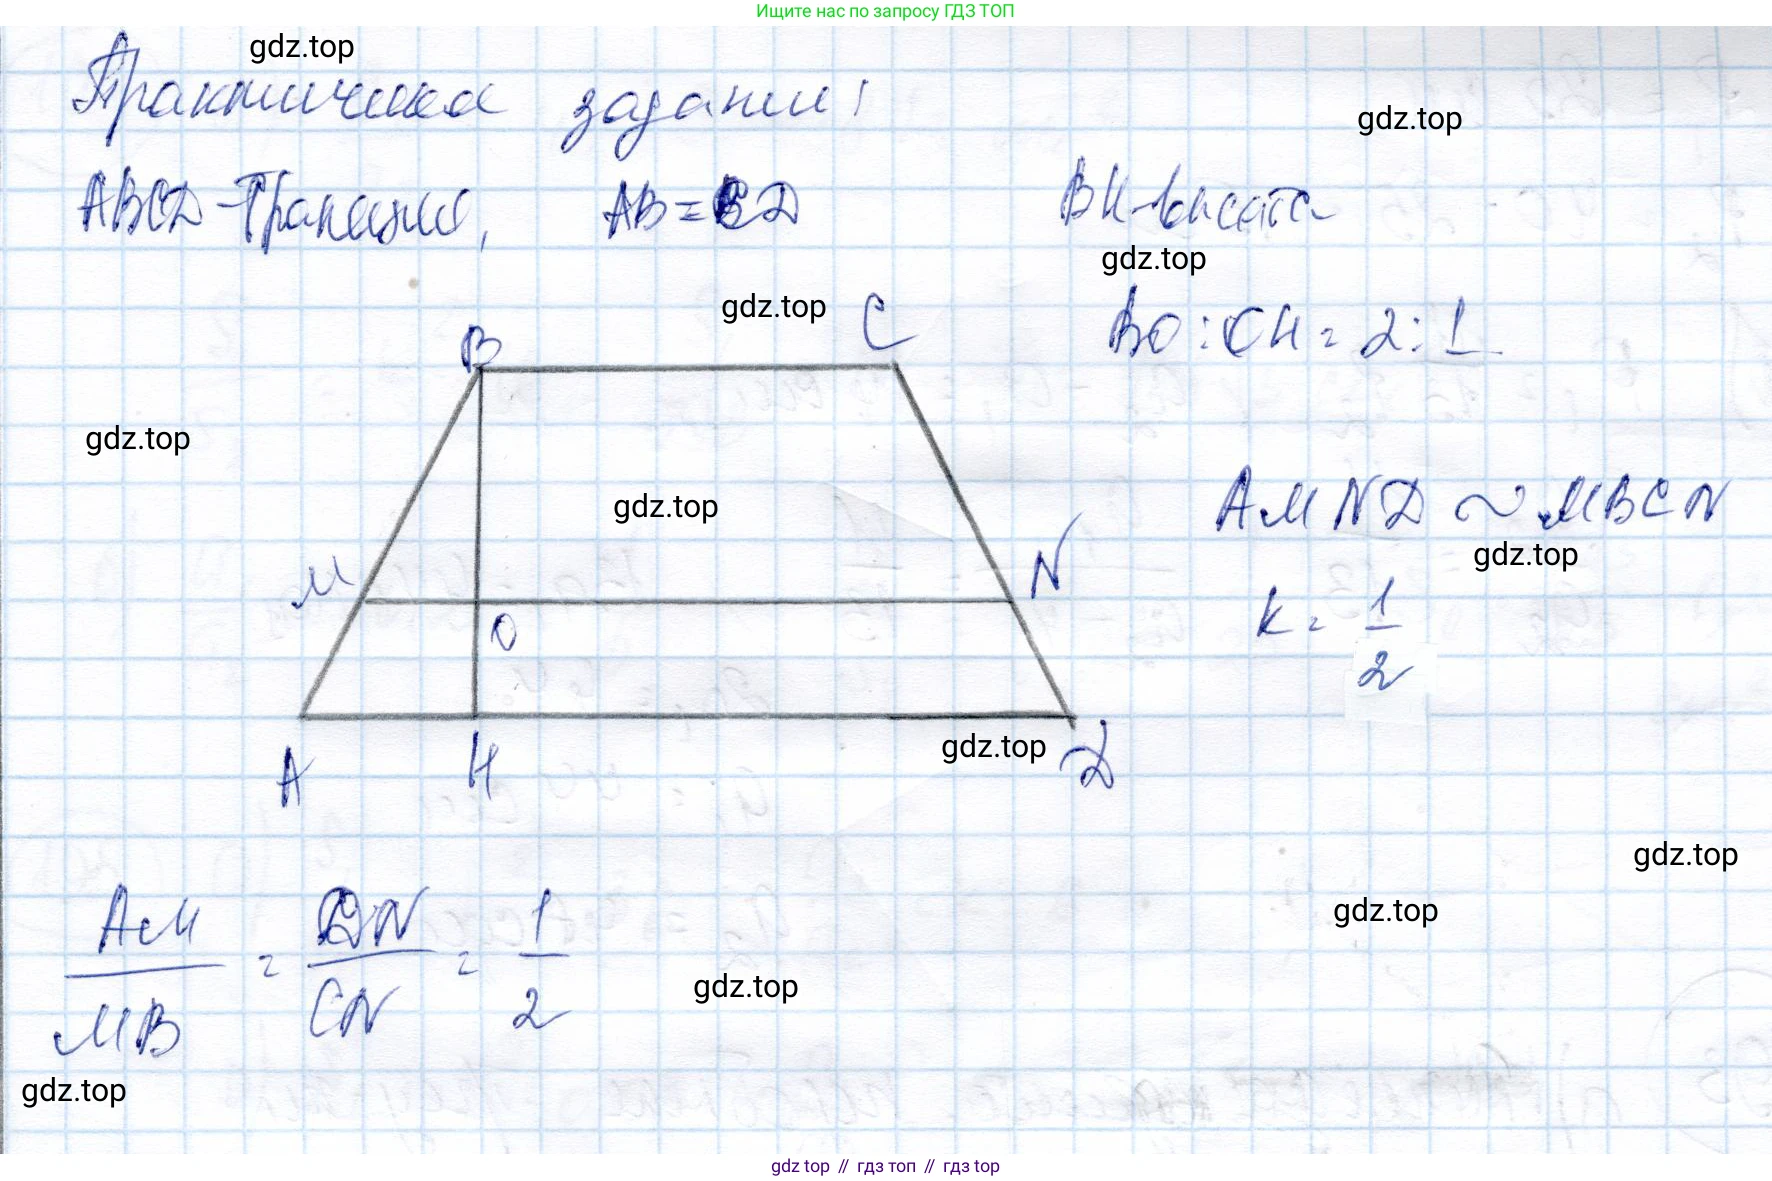 Ищите нас по запросу ГДЗ ТОП
gdz.top
Практическая задание:
gdz.top
ABCD - Трапеция, AB = CD BH - высота
gdz.top
gdz.top
B C
BO : OH = 2 : 1
gdz.top
gdz.top
AMND ~ MBCN
gdz.top
M N
O
k = 1/2
gdz.top
A H D
gdz.top
gdz.top
AM/MB = DN/CN = 1/2
gdz.top
gdz.top
gdz top // гдз топ // гдз top